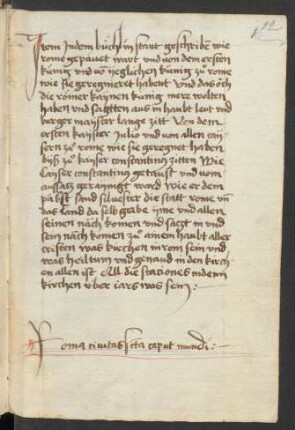 Item In dem büch in staut geschribē wie
rome gepauet wart vnd von dem ersten
künig vnd vō yeglichen künig zů rome
wie sie geregneret habent Vnd das och
die römer kaynen künig mere wolten
haben vnd saczten aus in haubt leut vnd
burgermayster lange zitt Von dem
ersten kayser Julio vnd von allen cay-
sern zů rome wie sie geregnet haben
biß zů kayser constantinus zitten Wie
Cayser constantinus getauft vnd vom
aussacz geraynigt ward wie er dem
pabst sand siluester die statt rome vn̄
das land da selb gabe ÿme vnd allen
seinen näch komen vnd saczt in vnd
sein näch komen zů ainem haubt aller
cristen was kirchen in rom sein vnd
was heiltum vnd genaud in den kirch
en allen ist All die staciones in den
kirchen vber iars was sein :
Roma ciuitas sc̄ta caput mundi :